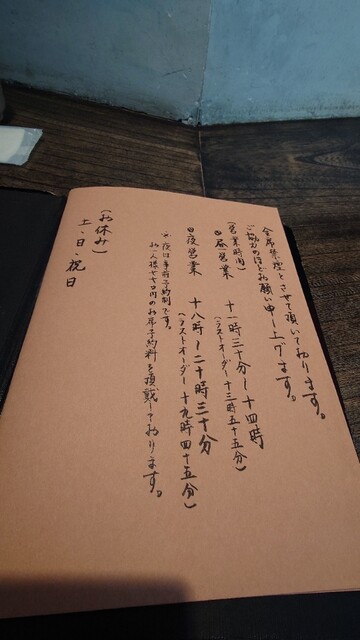 全席禁煙とさせて頂いております。
ご協力のほどお願い申し上げます。
(営業時間)
昼営業 十一時三十分〜十四時
(ラストオーダー十三時五十五分)
夜営業 十八時〜二十時三十分
(ラストオーダー十九時四十五分)
※夜は事前予約制です。
お一人様七七〇円のお席予約料を頂戴しております。
(お休み)
土・日・祝日